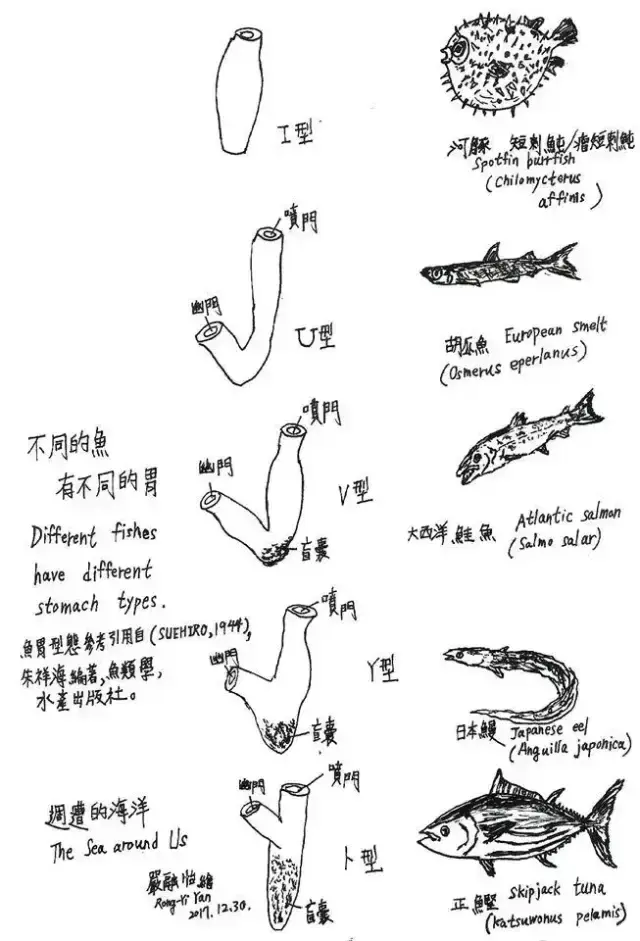 I型
河豚 短刺魨/瘤短刺魨
Spotfin burrfish
(Chilomycterus
affinis)
噴門
幽門
U型
胡瓜魚 European smelt
(Osmerus eperlanus)
噴門
幽門
V型
盲囊
大西洋鮭魚 Atlantic salmon
(Salmo salar)
不同的魚
有不同的胃
Different fishes
have different
stomach types.
魚胃型態參考引用自(SUEHIRO, 1944),
朱祥海編著,魚類學,
水產出版社。
噴門
幽門
Y型
盲囊
日本鰻 Japanese eel
(Anguilla japonica)
週遭的海洋
The Sea around Us
嚴融怡繪
Rong-Yi Yan
2017.12.30.
噴門
幽門
卜型
盲囊
正鰹 Skipjack tuna
(Katsuwonus pelamis)